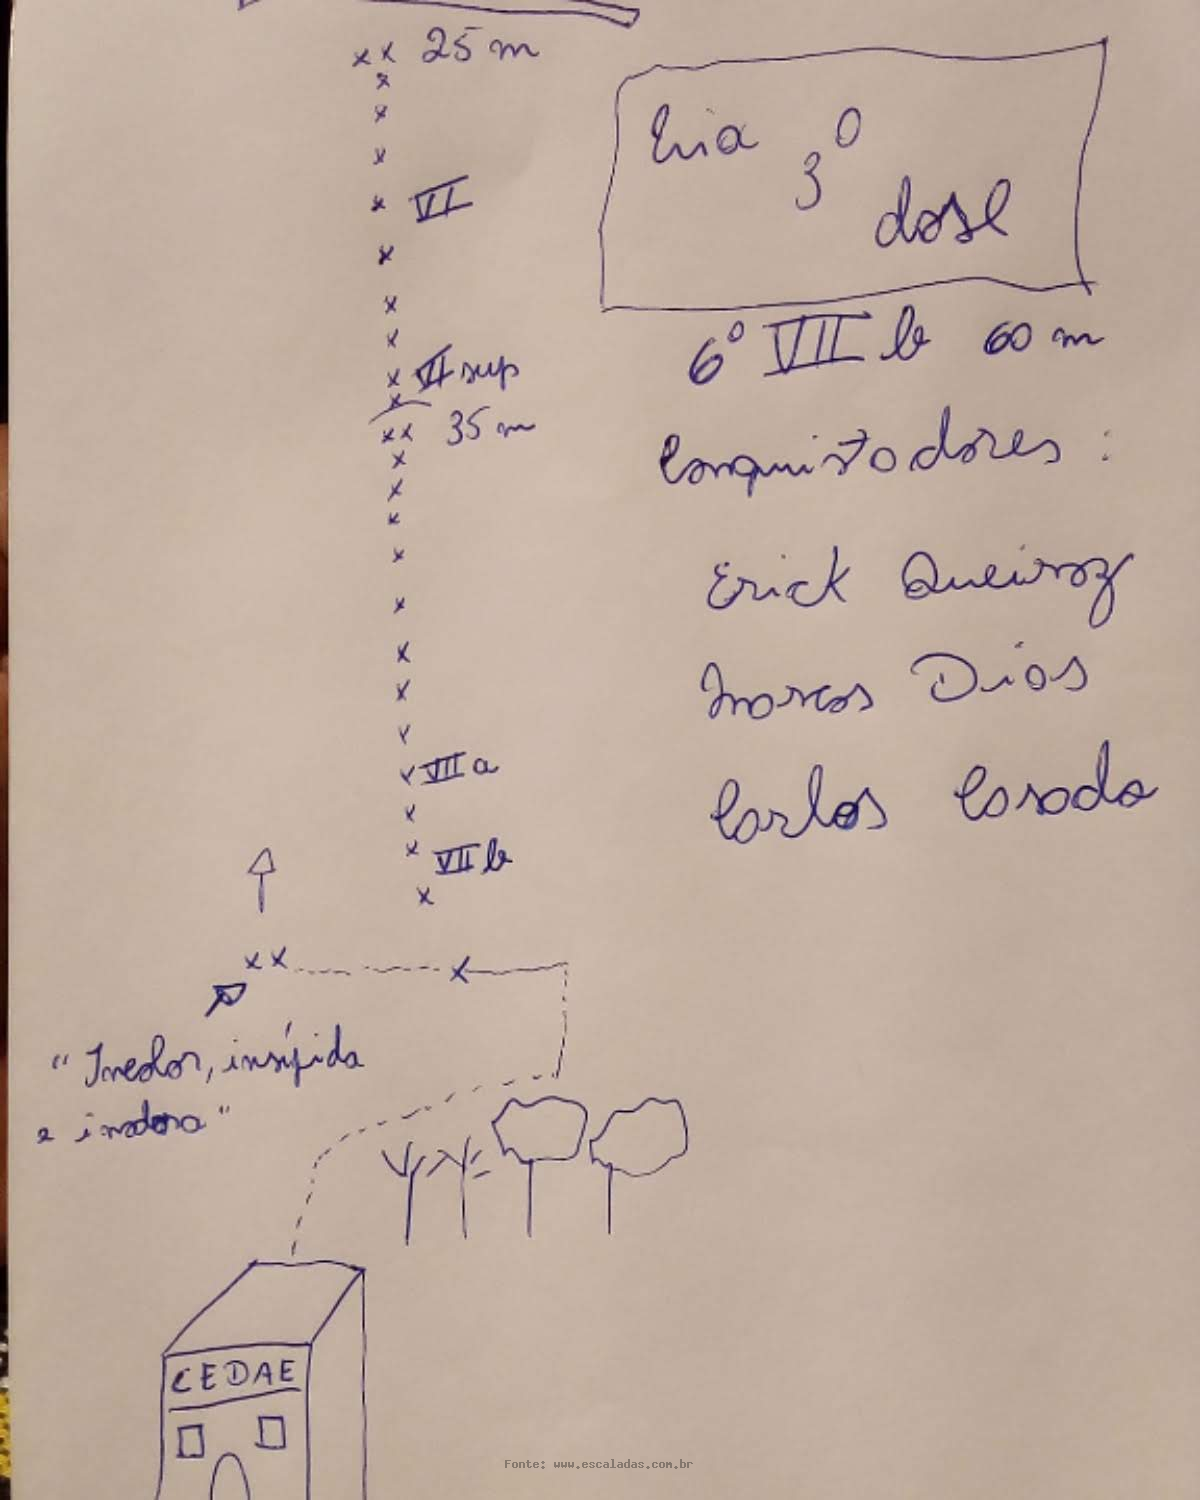 25 m
Via 3º
dose
VI
6º VII b 60 m
VI sup
35 m
Conquistadores :
Erick Queiroz
Marcos Dias
VII a
Carlos
VII b
"Incolor, insípida
e inodora"
CEDAE
Fonte: www.escaladas.com.br